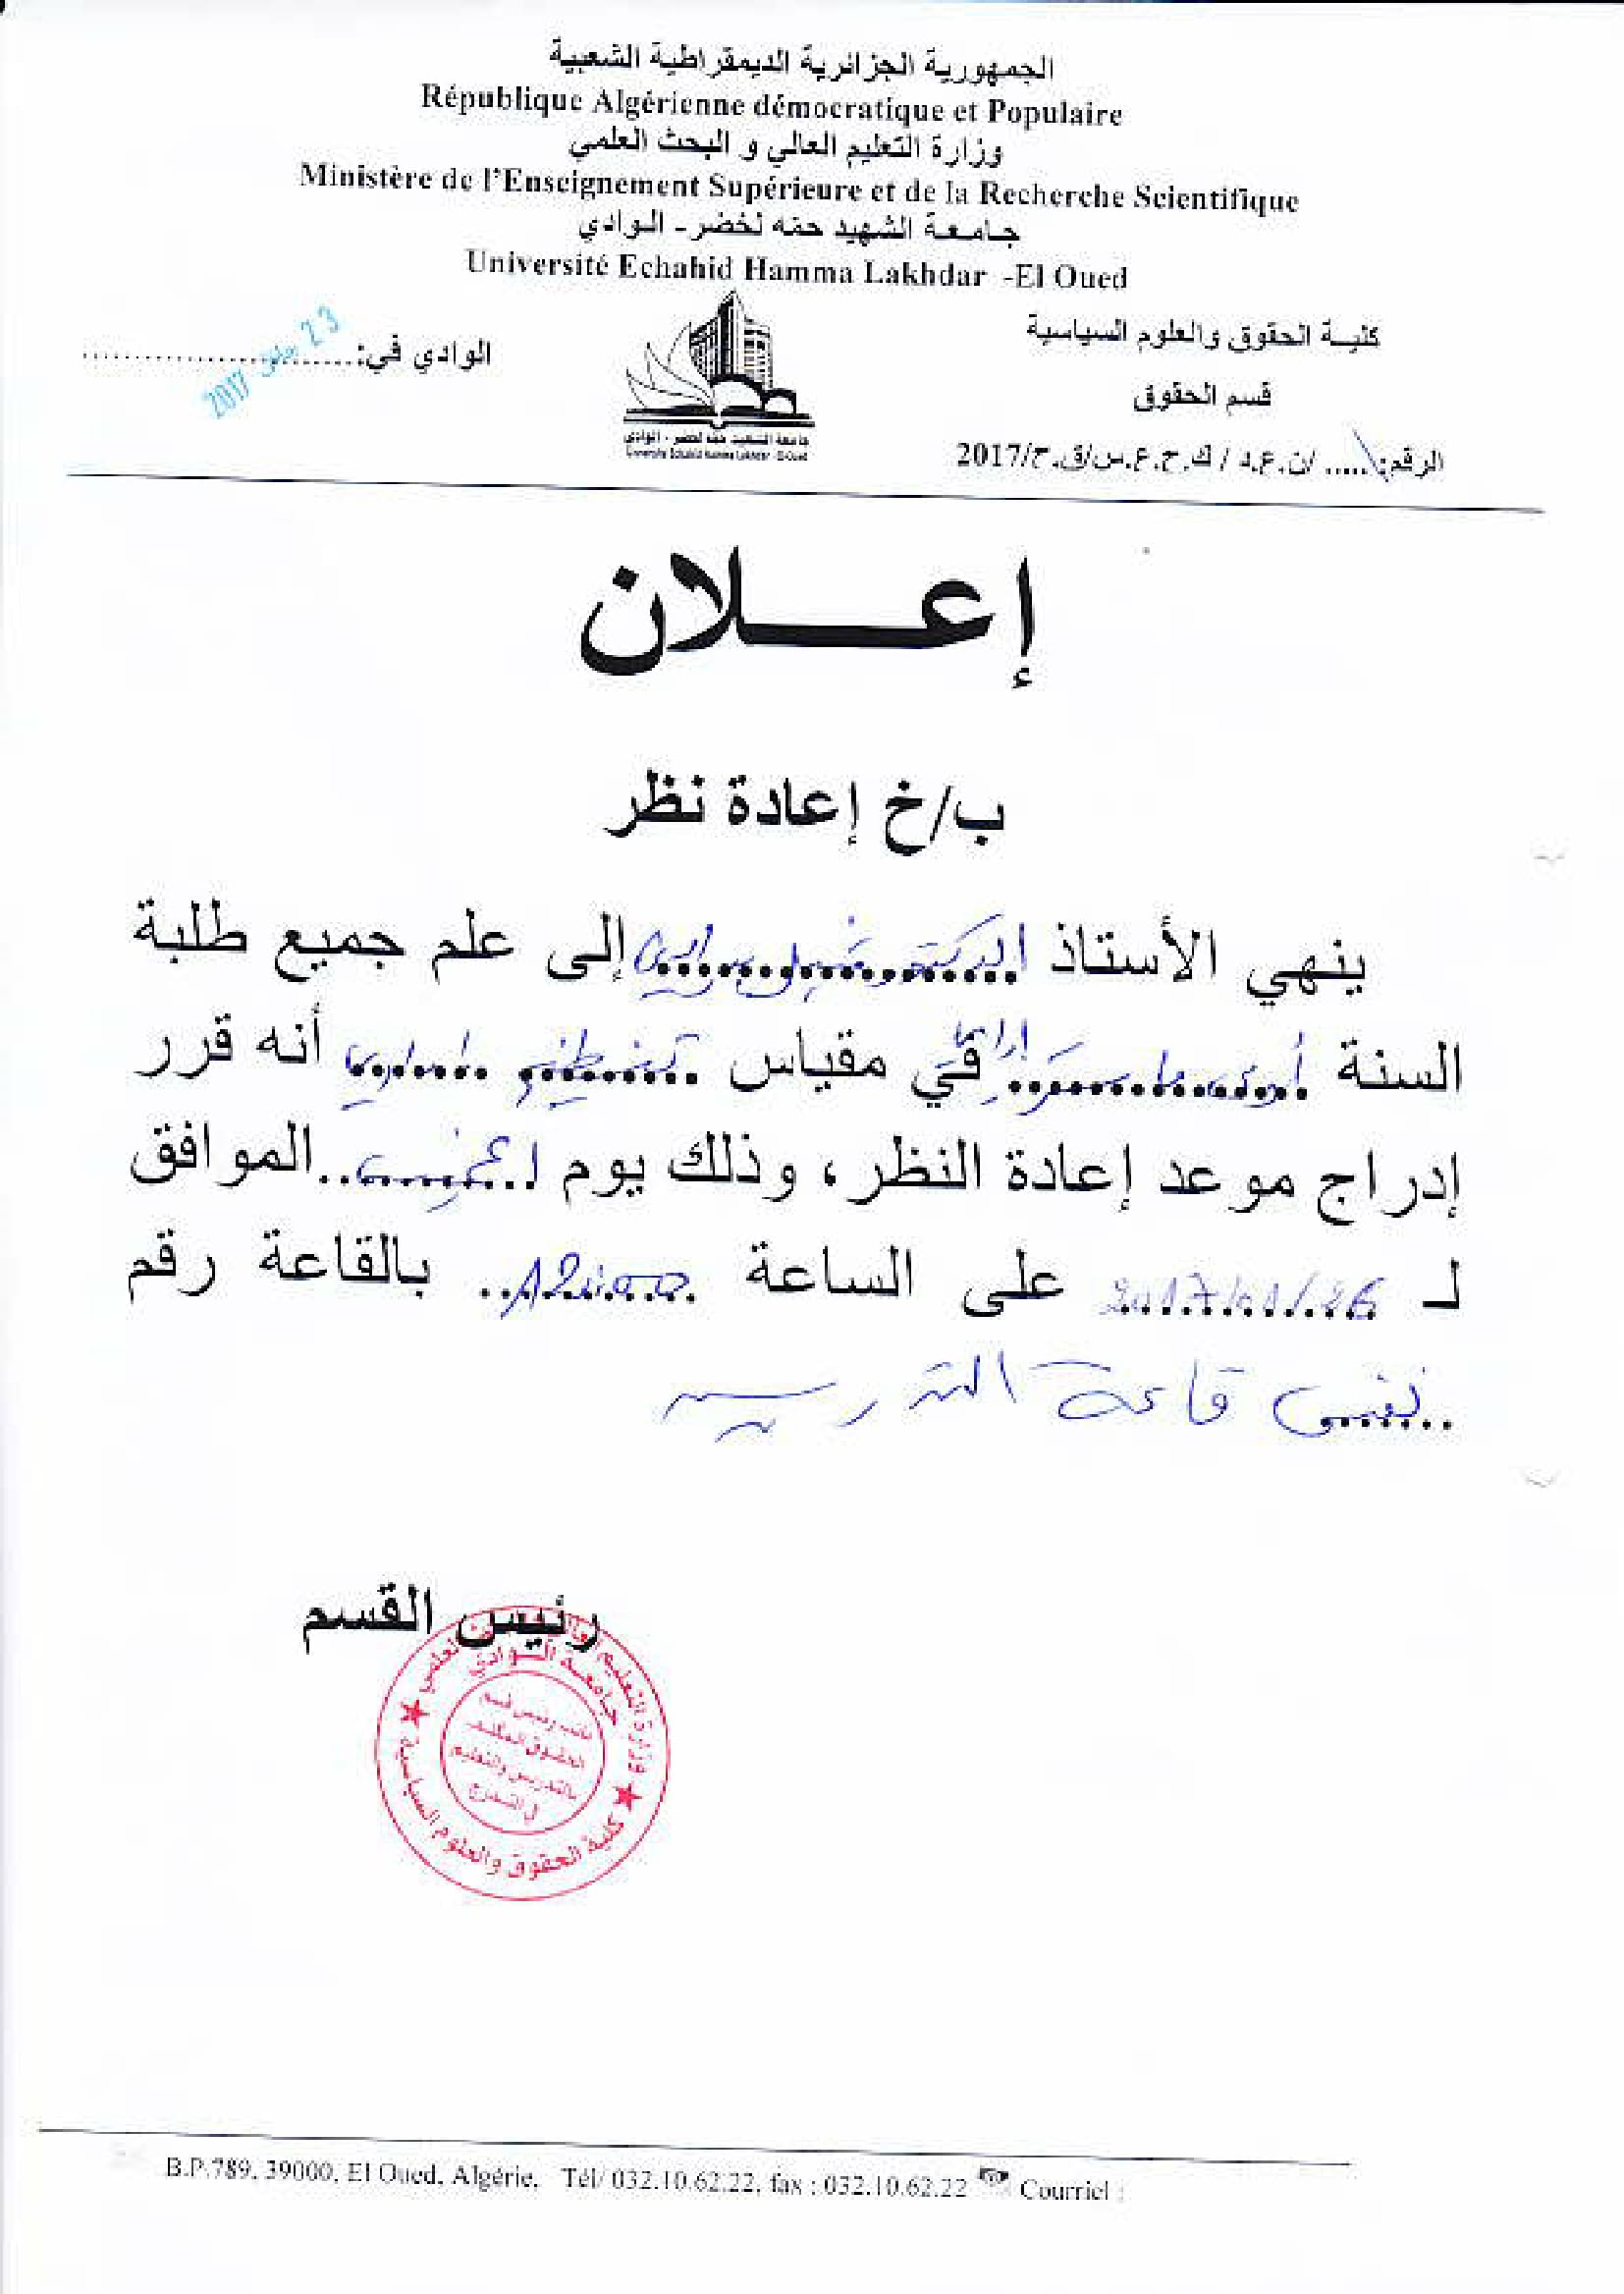 الجمهورية الجزائرية الديمقراطية الشعبية
République Algérienne démocratique et Populaire
وزارة التعليم العالي و البحث العلمي
Ministère de l'Enseignement Supérieure et de la Recherche Scientifique
جامعة الشهيد حمّه لخضر - الوادي
Université Echahid Hamma Lakhdar -El Oued
كلية الحقوق والعلوم السياسية
الوادي في: 23 جانفي 2017
جامعة الشهيد حمّه لخضر - الوادي
Université Echahid Hamma Lakhdar - El-Oued
قسم الحقوق
الرقم: ..... /ن.ع.د / ك.ح.ع.س/ق.ح/2017
إعلان
ب/خ إعادة نظر
ينهي الأستاذ الدكتور إلى علم جميع طلبة
السنة أولى ماستر في مقياس أنه قرر
إدراج موعد إعادة النظر، وذلك يوم الخميس الموافق
لـ 2017/01/26 على الساعة 12:00 بالقاعة رقم
نفس قاعة التدريس
رئيس القسم
وزارة التعليم العالي والبحث العلمي
جامعة الوادي
نائب رئيس قسم
الحقوق المكلف
بالتدريس والتعليم
في التدرج
كلية الحقوق والعلوم السياسية
B.P.789, 39000, El Oued, Algérie, Tél/ 032.10.62.22, fax : 032.10.62.22 Courriel :